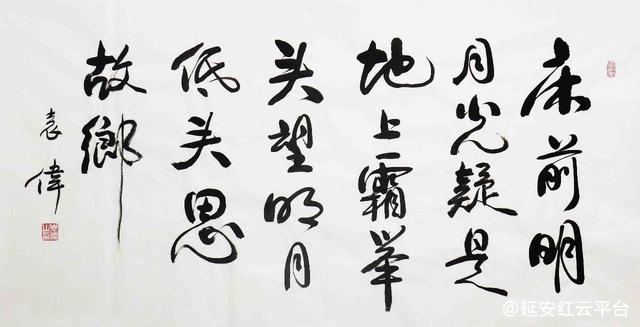 床前明
月光疑是
地上霜举
头望明月
低头思
故鄉
袁偉
@延安红云平台